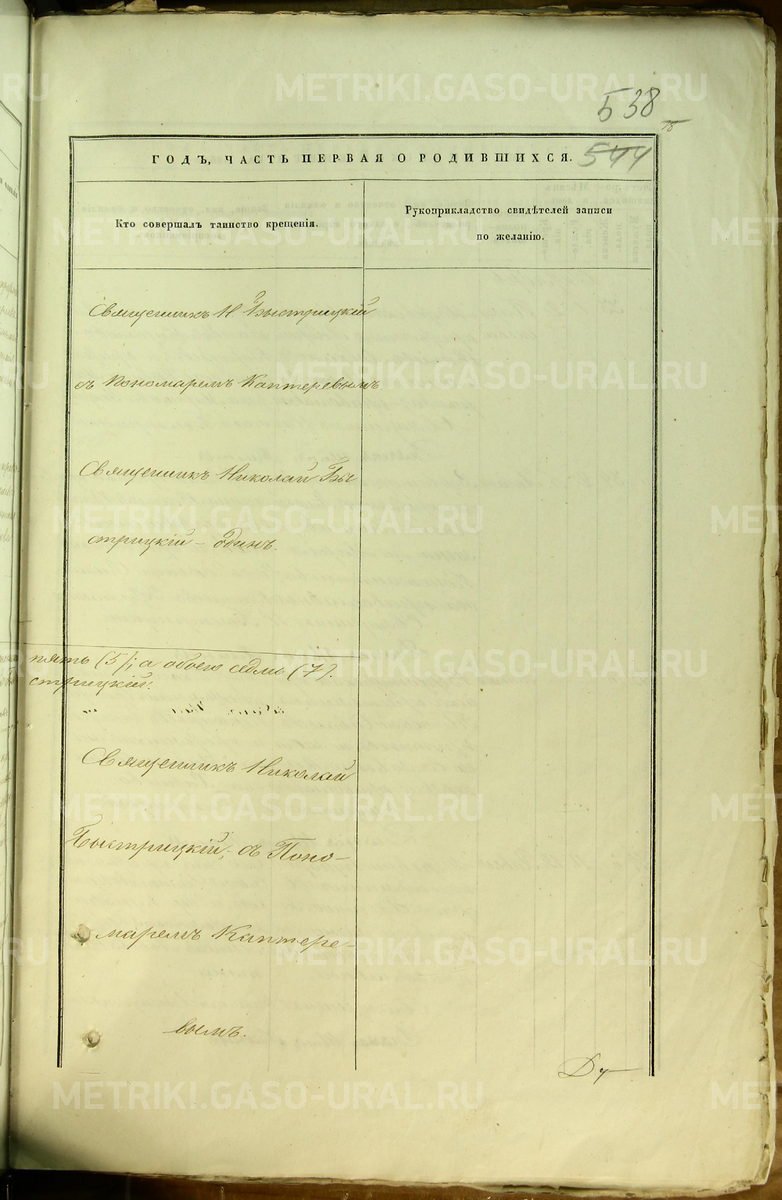 538
78
ГОДЪ, ЧАСТЬ ПЕРВАЯ О РОДИВШИХСЯ.
544
Кто совершалъ таинство крещенія.
Рукоприкладство свидѣтелей записи
по желанію.
Священникъ Н Быстрицкій
съ Пономаремъ Каптеревымъ
Священникъ Николай Бы
стрицкій - Одинъ.
пять (5); а обоего седмь (7).
стрицкій.
Священникъ Николай
Быстрицкій, съ Поно-
маремъ Каптере-
вымъ.
METRIKI.GASO-URAL.RU